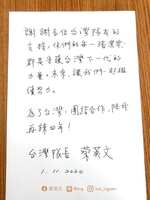 謝謝各位台灣隊友的
支持,你們的每一個選擇
都是 台灣下一代的
力量。未來,讓我們一起繼
續努力。
為了台灣,團結合作,
再拚四年!
台灣隊長 蔡英文
1. 11. 2020
蔡英文 @iing tsai_ingwen